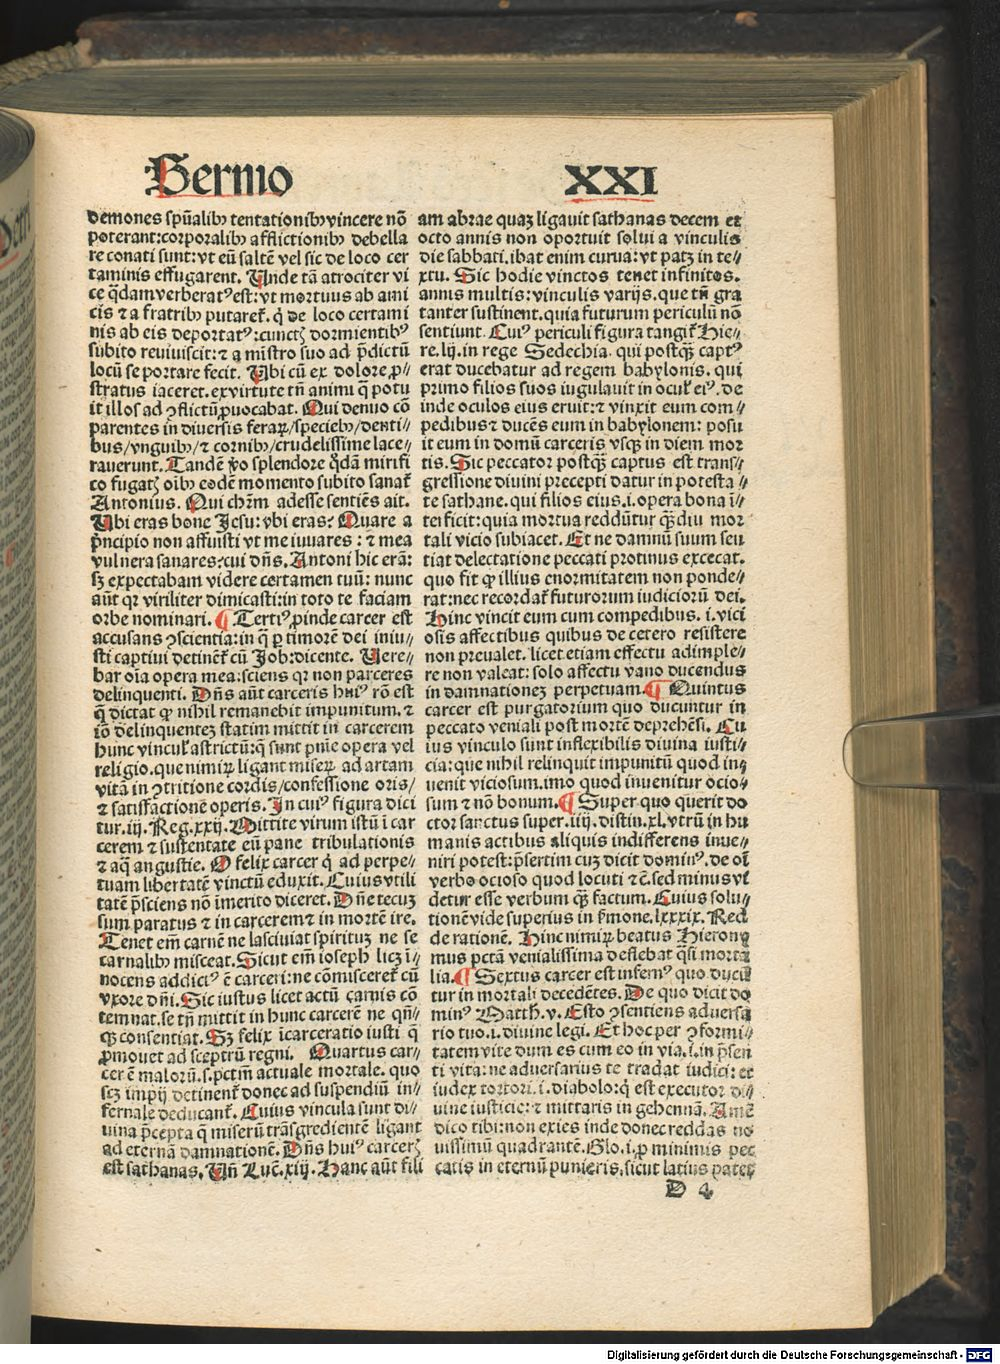 Sermo XXI
demones spũalibꝰ tentationibꝰ vincere nõ
poterant: corporalibꝰ afflictionibꝰ debella
re conati sunt: vt eũ saltẽ vel sic de loco cer
taminis effugarent. Unde tã atrociter vi
ce q̃dam verberatꝰ est: vt mortuus ab ami
cis ⁊ a fratribꝰ putaret̃. q̃ de loco certami
nis ab eis deportatꝰ: cunctꝭ dormientibꝰ
subito reuiuiscit: ⁊ a mĩstro suo ad p̃dictũ
locũ se portare fecit. Ubi cũ ex dolore ꝓ⸗
stratus iaceret. ex virtute tñ animi q̃ potu
it illos ad ꝯflictũ ꝓuocabat. Qui denuo cõ
parentes in diuersis feraꝝ/speciebꝰ/denti⸗
bus/vnguibꝰ/⁊ cornibꝰ/crudelissime lace⸗
rauerunt. Tandẽ ꝟo splendore q̃dã mirifi
co fugatꝭ oĩbꝰ eodẽ momento subito sanat̃
Antonius. Qui chr̃m adesse sentiẽs ait.
Ubi eras bone Jesu: vbi eras? Quare a
p̃ncipio non affuisti vt me iuuares: ⁊ mea
vulnera sanares? cui dñs. Antoni hic erã:
sꝫ expectabam videre certamen tuũ: nunc
aũt qꝛ viriliter dimicasti: in toto te faciam
orbe nominari. ¶ Tertiꝰ ꝓinde carcer est
accusans ꝯscientia: in q̃ ꝑ timorẽ dei iniu⸗
sti captiui detinent̃ cũ Job: dicente. Uere⸗
bar oĩa opera mea: sciens qꝛ non parceres
delinquenti. Dñs aũt carceris huiꝰ rõ est
q̃ dictat ꝙ nihil remanebit impunitum. ⁊
iõ delinquentez statim mittit in carcerem
hunc vincul̃ astrictũ: q̃ sunt pñie opera vel
religio. que nimiꝝ ligant miseꝝ ad artam
vitã in ꝯtritione cordis/confessione oris/
⁊ satisfactionẽ operis. In cuiꝰ figura dici
tur. iij. Reg. xxij. Mittite virum istũ ĩ car
cerem ⁊ sustentate eũ pane tribulationis
⁊ aq̃ angustie. O felix carcer q̃ ad perpe⸗
tuam libertatẽ vinctũ eduxit. Cuius vtili
tatẽ p̃sciens nõ ĩmerito diceret. Dñe tecuꝫ
sum paratus ⁊ in carcerem ⁊ in mortẽ ire.
Tenet em̃ carnẽ ne lasciuiat spirituꝫ ne se
carnalibꝰ misceat. Sicut em̃ ioseph licꝫ ĩ⸗
nocens addiciꝰ ẽ carceri: ne cõmisceret̃ cũ
vxore dñi. Sic iustus licet actũ carnis cõ
temnat. se tñ mittit in hunc carcerẽ ne qñ⸗
qꝫ consentiat. Sꝫ felix ĩcarceratio iusti q̃
ꝓmouet ad sceptrũ regni. Quartus car⸗
cer ẽ malorũ. s. pctm̃ actuale mortale. quo
scꝫ impij detinent̃ donec ad suspendiũ in⸗
fernale deducant̃. Cuius vincula sunt di⸗
uina p̃cepta q̃ miserũ trãsgredientẽ ligant
ad eternã damnationẽ. Dñs huiꝰ carcerꝭ
est sathanas. Uñ Luc̃. xiij. Hanc aũt fili
am abrae quaꝫ ligauit sathanas decem et
octo annis non oportuit solui a vinculis
die sabbati. ibat enim curua: vt patꝫ in te⸗
xtu. Sic hodie vinctos tenet infinitos.
annis multis: vinculis varijs. que tñ gra
tanter sustinent. quia futurum periculũ nõ
sentiunt. Cuiꝰ periculi figura tangit̃ Hie⸗
re. lij. in rege Sedechia. qui postqꝫ captꝰ
erat ducebatur ad regem babylonis. qui
primo filios suos iugulauit in ocul̃ eiꝰ. de
inde oculos eius eruit: ⁊ vinxit eum com⸗
pedibus ⁊ ducẽs eum in babylonem: posu
it eum in domũ carceris vsqꝫ in diem mor
tis. Sic peccator postqꝫ captus est trans⸗
gressione diuini precepti datur in potesta⸗
te sathane. qui filios eius. i. opera bona ĩ⸗
terficit: quia mortua reddũtur qꝫdiu mor
tali vicio subiacet. Et ne damnũ suum sen
tiat delectatione peccati protinus excecat.
quo fit ꝙ illius enormitatem non ponde⸗
rat: nec recordat̃ futurorum iudiciorũ dei.
Hinc vincit eum cum compedibus. i. vici
osis affectibus quibus de cetero resistere
non preualet. licet etiam effectu adimple⸗
re non valeat: solo affectu vano ducendus
in damnationeꝫ perpetuam. ¶ Quintus
carcer est purgatorium quo ducuntur in
peccato veniali post mortẽ deprehẽsi. Cu
ius vinculo sunt inflexibilis diuina iusti⸗
cia: que nihil relinquit impunitũ quod in⸗
uenit viciosum. imo quod inuenitur ocio⸗
sum ⁊ nõ bonum. ¶ Super quo querit do
ctor sanctus super. iiij. distin. xl. vtrũ in hu
manis actibus aliquis indifferens inue⸗
niri potest: p̃sertim cuꝫ dicit dominꝰ. de oĩ
verbo ocioso quod locuti ⁊c̃. sed minus vi
detur esse verbum qꝫ factum. Cuius solu⸗
tionẽ vide superius in s̃mone. lxxxix. Red
de rationẽ. Hinc nimiꝝ beatus Hierony
mus pctã venialissima deflebat q̃si morta
lia. ¶ Sextus carcer est infernꝰ quo duci
tur in mortali decedẽtes. De quo dicit do
minꝰ Matth. v. Esto ꝯsentiens aduersa
rio tuo. i. diuine legi. Et hoc per ꝯformi⸗
tatem vite dum es cum eo in via. i. in p̃sen
ti vita: ne aduersarius te tradat iudici: et
iudex tortori. i. diabolo: q̃ est executor di⸗
uine iusticie: ⁊ mittaris in gehennã. Amẽ
dico tibi: non exies inde donec reddas no
uissimũ quadrantẽ. Glo. i. ꝓ minimis pec
catis in eternũ punieris. sicut latius patet
D 4
Digitalisierung gefördert durch die Deutsche Forschungsgemeinschaft - DFG